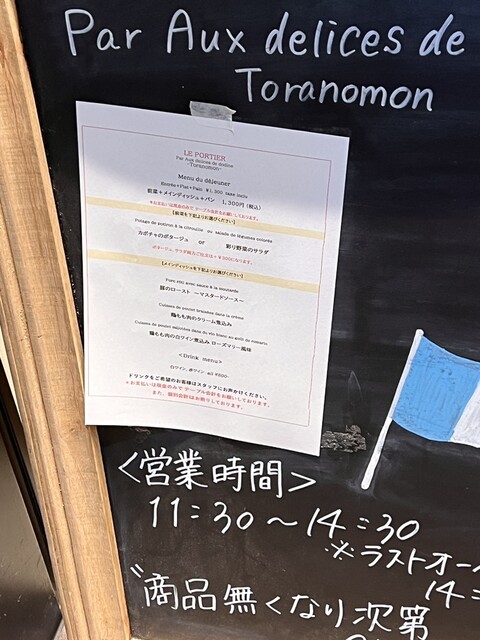 Par Aux delices de
Toranomon
LE PORTIER
Par Aux delices de dodine
-Toranomon-
Menu du déjeuner
Entrée+Plat+Pain ¥1,300 taxe inclu
前菜＋メインディッシュ＋パン 1,300円（税込）
※お支払いは現金のみで テーブル会計をお願いしております。
【前菜を下記よりお選びください】
Potage de potiron à la citrouille ou salade de légumes colorés
カボチャのポタージュ or 彩り野菜のサラダ
ポタージュ、サラダ両方ご注文は＋¥300になります。
【メインディッシュを下記よりお選びください】
Porc rôti avec sauce à la moutarde
豚のロースト ～マスタードソース～
Cuisses de poulet braisées dans la crème
鶏もも肉のクリーム煮込み
Cuisses de poulet mijotées dans du vin blanc au goût de romarin
鶏もも肉の白ワイン煮込み ローズマリー風味
<Drink menu>
白ワイン、赤ワイン all ¥600-
ドリンクをご希望のお客様はスタッフにお声かけください。
※お支払いは現金のみで テーブル会計をお願いしております。
また、個別会計はお断りしております。
<営業時間>
11:30～14:30
※ラストオー
14:
〝商品無くなり次第